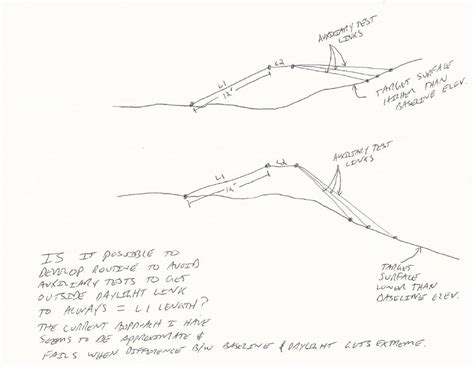 AUXILIARY TEST
LINKS
L1
L2
12'
TARGET SURFACE
HIGHER THAN
BASELINE ELEV.
AUXILIARY TEST
LINKS
L1
L2
TARGET
SURFACE
LOWER THAN
BASELINE ELEV.
IS IT POSSIBLE TO
DEVELOP ROUTINE TO AVOID
AUXILIARY TESTS TO GET
OUTSIDE DAYLIGHT LINK
TO ALWAYS = L1 LENGTH?
THE CURRENT APPROACH I HAVE
SEEMS TO BE APPROXIMATE &
FAILS WHEN DIFFERENCE B/W BASELINE & DAYLIGHT GETS EXTREME.